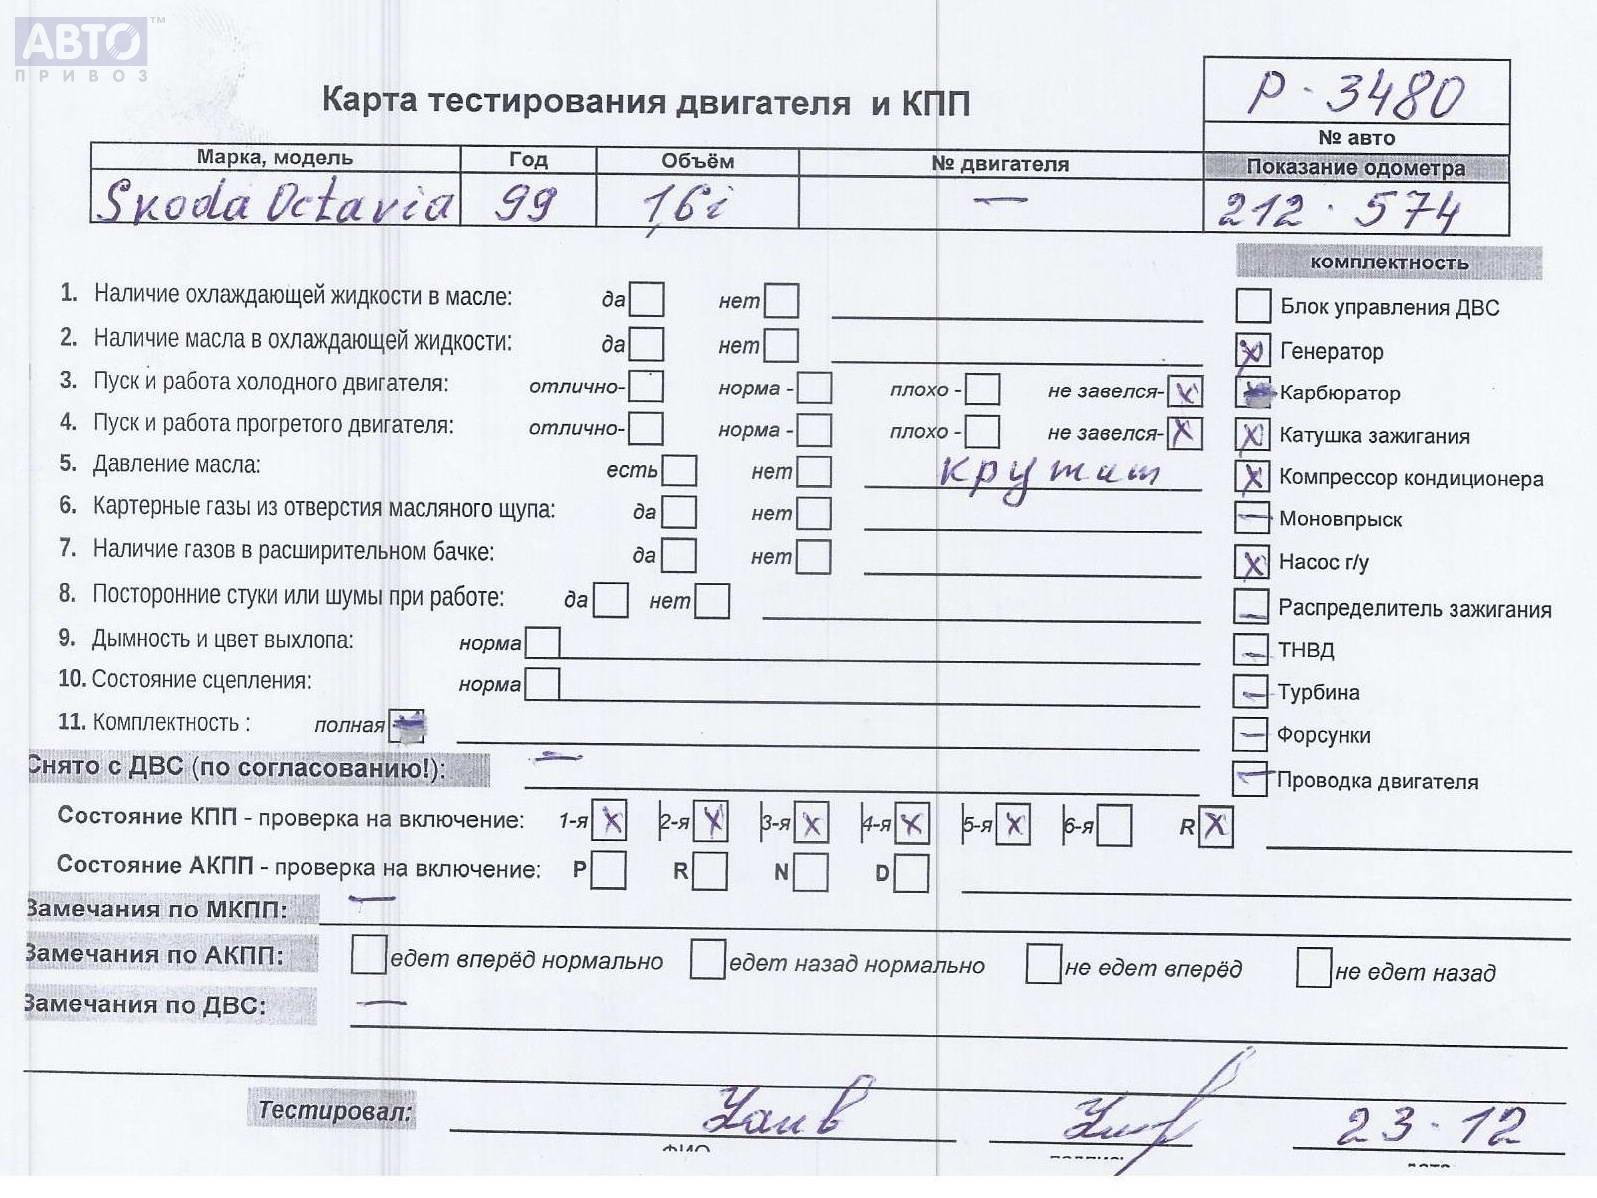 АВТО™
ПРИВОЗ
Карта тестирования двигателя и КПП
Р-3480
№ авто
Марка, модель Год Объём № двигателя Показание одометра
Skoda Octavia 99 1,6i — 212.574
комплектность
1. Наличие охлаждающей жидкости в масле: да нет
Блок управления ДВС
2. Наличие масла в охлаждающей жидкости: да нет
Генератор
3. Пуск и работа холодного двигателя: отлично- норма - плохо - не завелся- X
Карбюратор
4. Пуск и работа прогретого двигателя: отлично- норма - плохо - не завелся- X
Катушка зажигания
5. Давление масла: есть нет крутит
Компрессор кондиционера
6. Картерные газы из отверстия масляного щупа: да нет
Моновпрыск
7. Наличие газов в расширительном бачке: да нет
Насос г/у
8. Посторонние стуки или шумы при работе: да нет
Распределитель зажигания
9. Дымность и цвет выхлопа: норма
ТНВД
10. Состояние сцепления: норма
Турбина
11. Комплектность : полная
Форсунки
Снято с ДВС (по согласованию!): —
Проводка двигателя
Состояние КПП - проверка на включение: 1-я X 2-я X 3-я X 4-я X 5-я X 6-я R X
Состояние АКПП - проверка на включение: P R N D
Замечания по МКПП: —
Замечания по АКПП: едет вперёд нормально едет назад нормально не едет вперёд не едет назад
Замечания по ДВС: —
Тестировал: 23.12
ФИО подпись дата